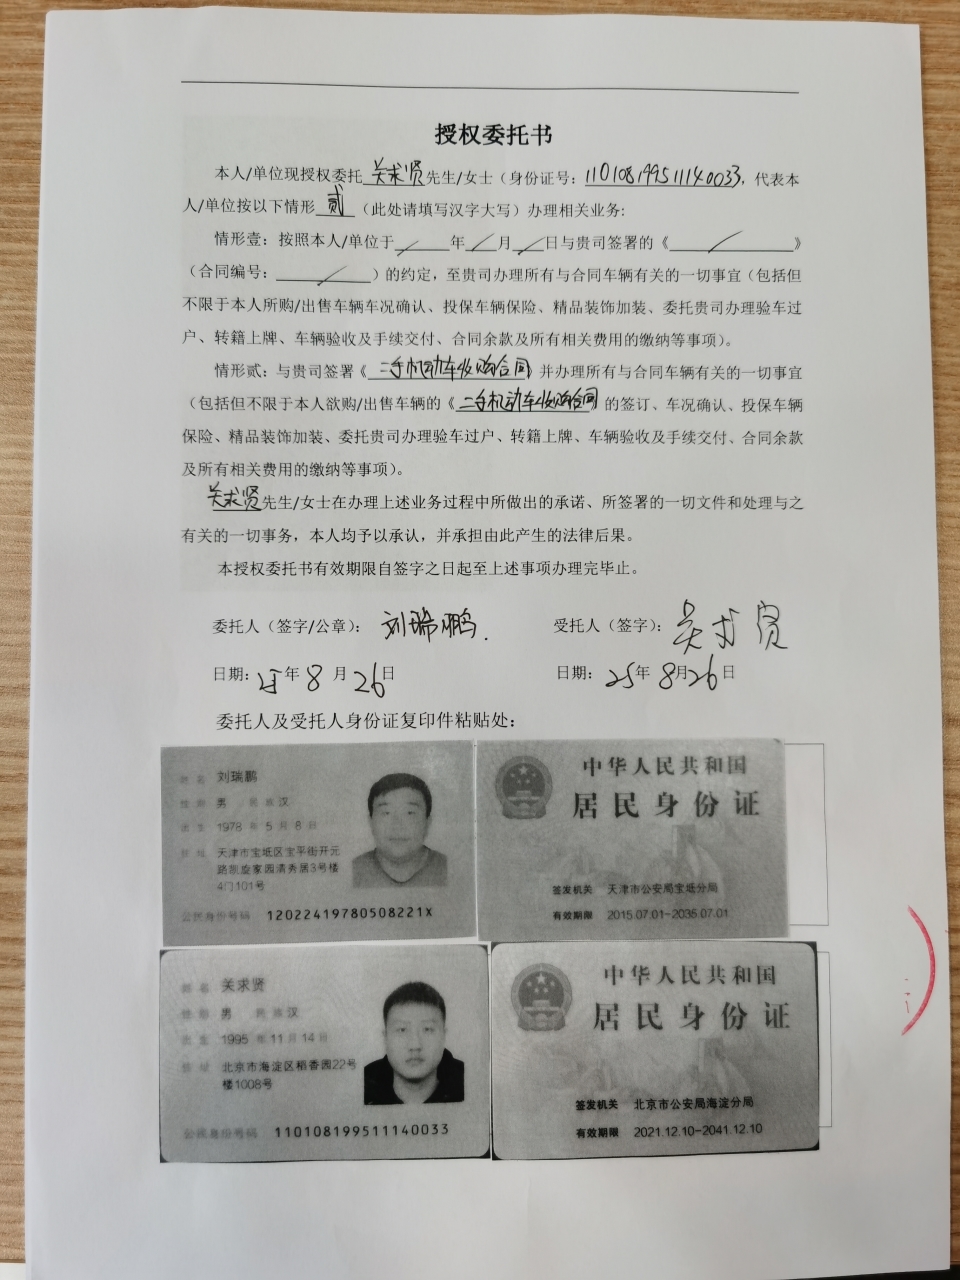 授权委托书
本人/单位现授权委托 关求贤 先生/女士（身份证号：110108199511140033，代表本
人/单位按以下情形 贰 （此处请填写汉字大写）办理相关业务:
情形壹：按照本人/单位于 / 年 / 月 / 日与贵司签署的《 / 》
（合同编号： / ）的约定，至贵司办理所有与合同车辆有关的一切事宜（包括但
不限于本人所购/出售车辆车况确认、投保车辆保险、精品装饰加装、委托贵司办理验车过
户、转籍上牌、车辆验收及手续交付、合同余款及所有相关费用的缴纳等事项）。
情形贰：与贵司签署《 二手机动车收购合同 》并办理所有与合同车辆有关的一切事宜
（包括但不限于本人欲购/出售车辆的《 二手机动车收购合同 》的签订、车况确认、投保车辆
保险、精品装饰加装、委托贵司办理验车过户、转籍上牌、车辆验收及手续交付、合同余款
及所有相关费用的缴纳等事项）。
关求贤 先生/女士在办理上述业务过程中所做出的承诺、所签署的一切文件和处理与之
有关的一切事务，本人均予以承认，并承担由此产生的法律后果。
本授权委托书有效期限自签字之日起至上述事项办理完毕止。
委托人（签字/公章）： 刘瑞鹏. 受托人（签字）： 关求贤
日期：25年 8 月 26日 日期：25年 8月26日
委托人及受托人身份证复印件粘贴处：
姓名 刘瑞鹏
性别 男 民族 汉
出生 1978 年 5 月 8 日
住址 天津市宝坻区宝平街开元
路凯旋家园清秀居3号楼
4门101号
公民身份号码 12022419780508221X
中华人民共和国
居民身份证
签发机关 天津市公安局宝坻分局
有效期限 2015.07.01-2035.07.01
姓名 关求贤
性别 男 民族 汉
出生 1995 年 11 月 14 日
住址 北京市海淀区稻香园22号
楼1008号
公民身份号码 110108199511140033
中华人民共和国
居民身份证
签发机关 北京市公安局海淀分局
有效期限 2021.12.10-2041.12.10